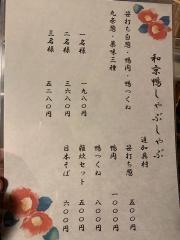 和京鴨しゃぶしゃぶ
笹打ち白葱・鴨肉・鴨つくね
九条葱・薬味三種
一名様 一九八〇円
二名様 三六八〇円
三名様 五二八〇円
追加具材
笹打ち葱 五〇〇円
鴨肉 一〇〇〇円
鴨つくね 八〇〇円
雑炊セット 五〇〇円
日本そば 六〇〇円